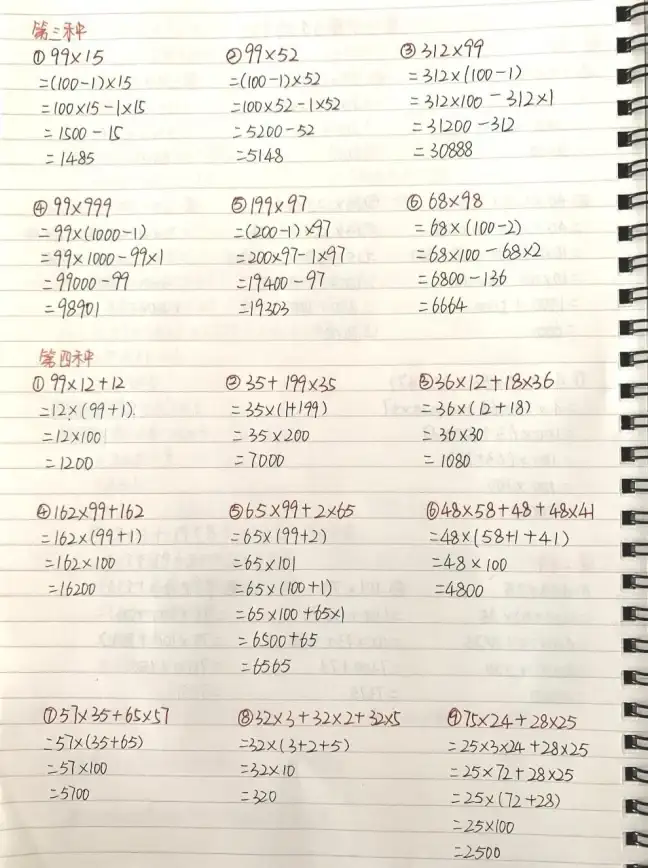 第三种
① 99×15
=(100-1)×15
=100×15-1×15
=1500-15
=1485
② 99×52
=(100-1)×52
=100×52-1×52
=5200-52
=5148
③ 312×99
=312×(100-1)
=312×100-312×1
=31200-312
=30888
④ 99×999
=99×(1000-1)
=99×1000-99×1
=99000-99
=98901
⑤ 199×97
=(200-1)×97
=200×97-1×97
=19400-97
=19303
⑥ 68×98
=68×(100-2)
=68×100-68×2
=6800-136
=6664
第四种
① 99×12+12
=12×(99+1)
=12×100
=1200
② 35+199×35
=35×(1+199)
=35×200
=7000
③ 36×12+18×36
=36×(12+18)
=36×30
=1080
④ 162×99+162
=162×(99+1)
=162×100
=16200
⑤ 65×99+2×65
=65×(99+2)
=65×101
=65×(100+1)
=65×100+65×1
=6500+65
=6565
⑥ 48×58+48+48×41
=48×(58+1+41)
=48×100
=4800
⑦ 57×35+65×57
=57×(35+65)
=57×100
=5700
⑧ 32×3+32×2+32×5
=32×(3+2+5)
=32×10
=320
⑨ 75×24+28×25
=25×3×24+28×25
=25×72+28×25
=25×(72+28)
=25×100
=2500